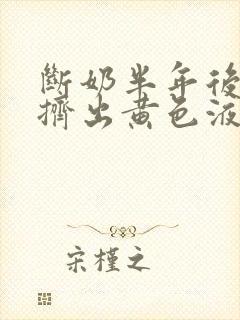 斷奶半年後
擠出黃色液
宋槿之